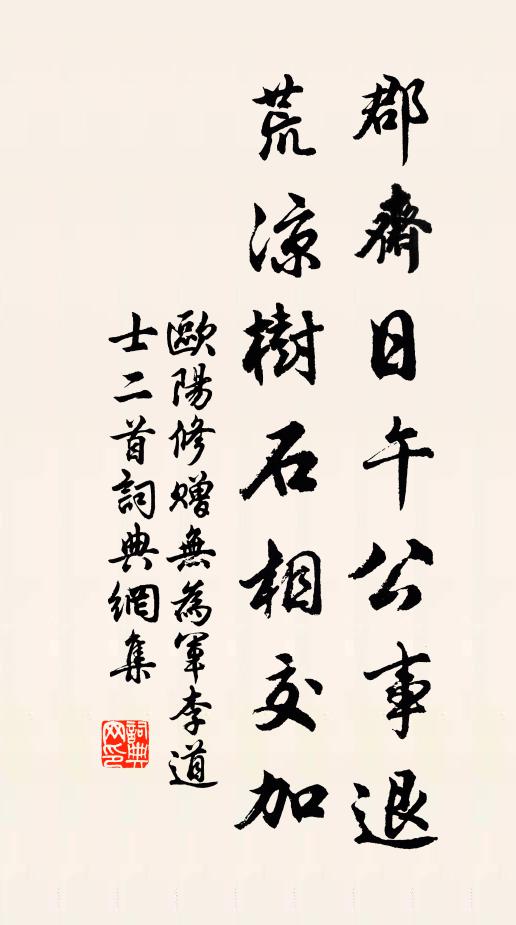 郡齋日午公事退
荒涼樹石相交加
歐陽修贈無為軍李道
士二首詞典網集
詞典
網印